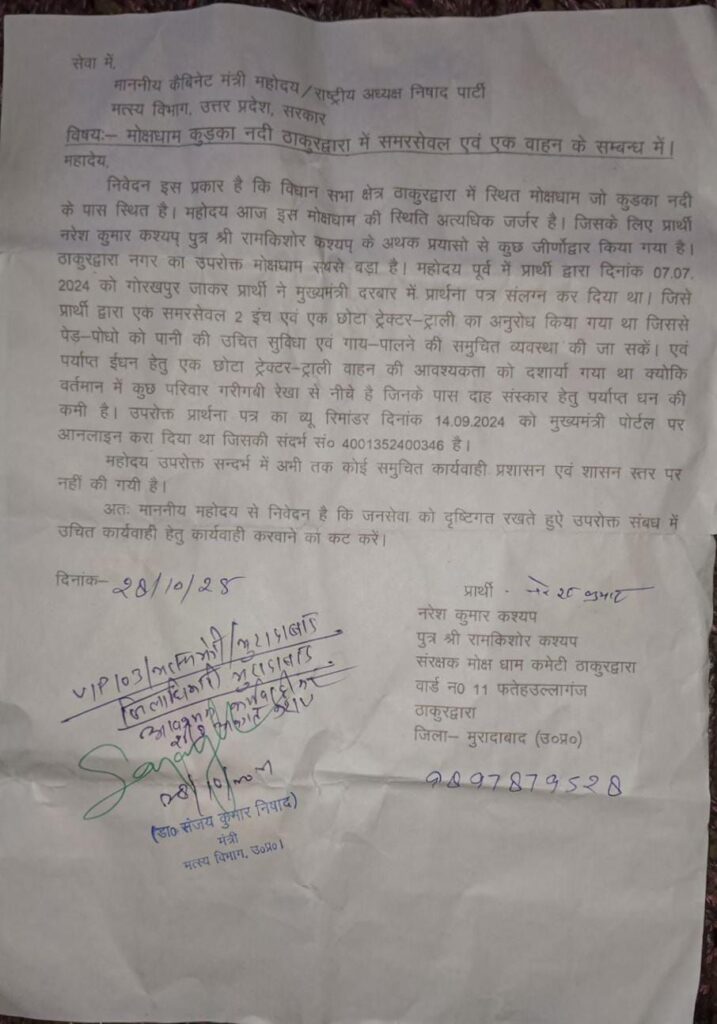 सेवा में,
माननीय कैबिनेट मंत्री महोदय/राष्ट्रीय अध्यक्ष निषाद पार्टी
मत्स्य विभाग, उत्तर प्रदेश, सरकार
विषयः– मोक्षधाम कुड़का नदी ठाकुरद्वारा में समरसेवल एवं एक वाहन के सम्बन्ध में।
महादेय,
निवेदन इस प्रकार है कि विधान सभा क्षेत्र ठाकुरद्वारा में स्थित मोक्षधाम जो कुड़का नदी
के पास स्थित है। महोदय आज इस मोक्षधाम की स्थिति अत्यधिक जर्जर है। जिसके लिए प्रार्थी
नरेश कुमार कश्यप् पुत्र श्री रामकिशोर कश्यप् के अथक प्रयासो से कुछ जीर्णोद्वार किया गया है।
ठाकुरद्वारा नगर का उपरोक्त मोक्षधाम सबसे बड़ा है। महोदय पूर्व में प्रार्थी द्वारा दिनांक 07.07.
2024 को गोरखपुर जाकर प्रार्थी ने मुख्यमंत्री दरबार में प्रार्थना पत्र संलग्न कर दिया था। जिसे
प्रार्थी द्वारा एक समरसेवल 2 इंच एवं एक छोटा ट्रेक्टर-ट्राली का अनुरोध किया गया था जिससे
पेड़-पोधो को पानी की उचित सुविधा एवं गाय-पालने की समुचित व्यवस्था की जा सकें। एवं
पर्याप्त ईधन हेतु एक छोटा ट्रेक्टर-ट्राली वाहन की आवश्यकता को दर्शाया गया था क्योकि
वर्तमान में कुछ परिवार गरीगबी रेखा से नीचे है जिनके पास दाह संस्कार हेतु पर्याप्त धन की
कमी है। उपरोक्त प्रार्थना पत्र का व्यू रिमांडर दिनांक 14.09.2024 को मुख्यमंत्री पोर्टल पर
आनलाइन करा दिया था जिसकी संदर्भ सं० 4001352400346 है।
महोदय उपरोक्त सन्दर्भ में अभी तक कोई समुचित कार्यवाही प्रशासन एवं शासन स्तर पर
नहीं की गयी है।
अतः माननीय महोदय से निवेदन है कि जनसेवा को दृष्टिगत रखते हुऐ उपरोक्त संबध में
उचित कार्यवाही हेतु कार्यवाही करवाने का कट करें।
दिनांक– 28/10/24
प्रार्थी - नरेश कुमार
नरेश कुमार कश्यप
पुत्र श्री रामकिशोर कश्यप
संरक्षक मोक्ष धाम कमेटी ठाकुरद्वारा
वार्ड न0 11 फतेहउल्लागंज
ठाकुरद्वारा
जिला– मुरादाबाद (उ०प्र०)
9897879528
VIP/03/ /मुरादाबाद
जिलाधिकारी मुरादाबाद
(डा० संजय कुमार निषाद)
मंत्री
मत्स्य विभाग, उ०प्र०।